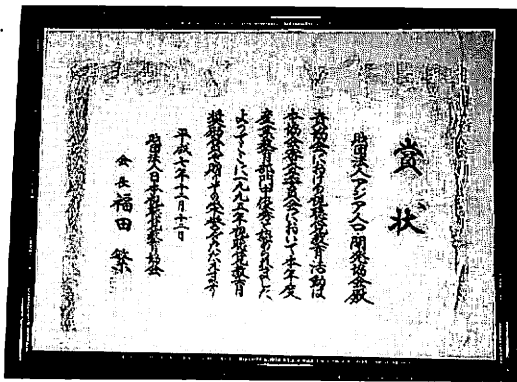 賞状
財団法人アジア人口・開発協会殿
貴協会における視聴覚教育活動は
当協会審査委員会において本年度
産業教育部門中優秀と認められました
よってここに一九九五年視聴覚教育
奨励賞を贈りその栄誉をたたえます
平成七年十二月十二日
財団法人日本視聴覚教育協会
会長 福田繁